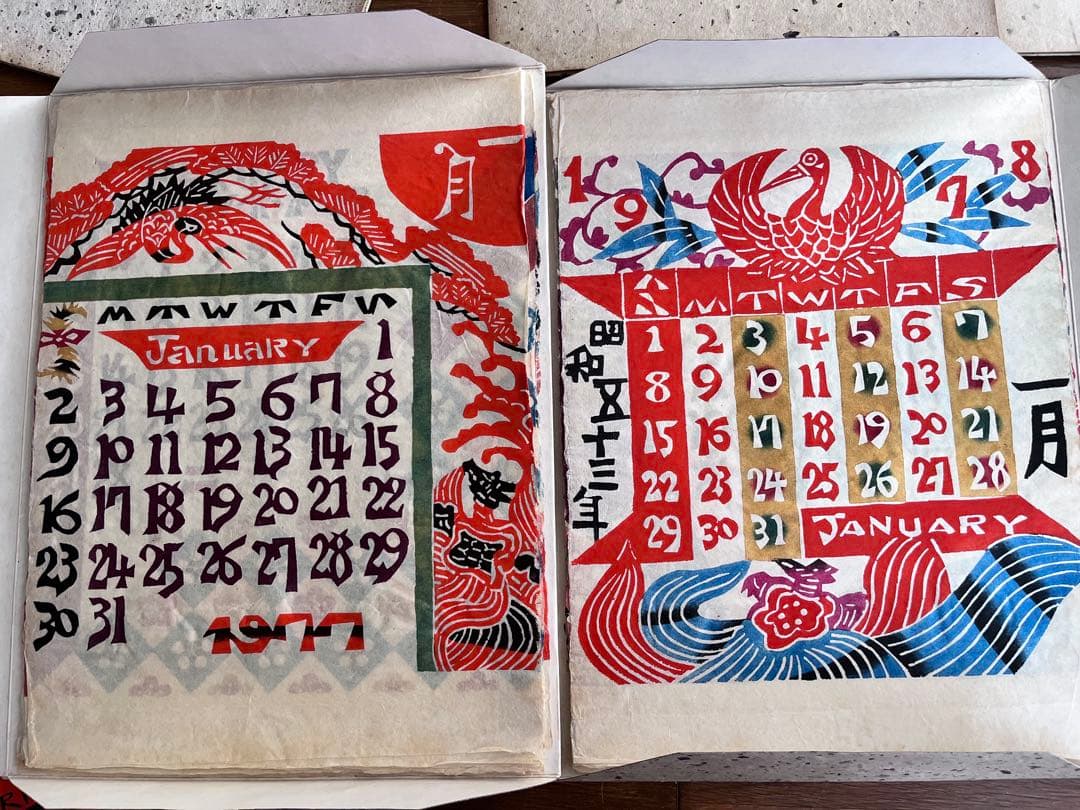 月
M T W T F S
January 1
2 3 4 5 6 7 8
9 10 11 12 13 14 15
16 17 18 19 20 21 22
23 24 25 26 27 28 29
30 31
1977
1978
S M T W T F S
1 2 3 4 5 6 7
8 9 10 11 12 13 14
15 16 17 18 19 20 21
22 23 24 25 26 27 28
29 30 31
JANUARY
昭和五十三年
一月